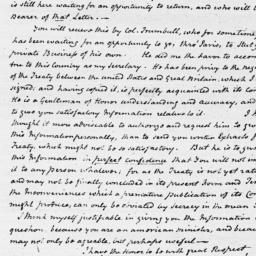 is still here waiting for an opportunity to return, and who will b
Bearer of that Letter.—
You will receive this by Col. Trumbull, who for sometime
has been waiting for an opportunity to go, thro' Paris, to Stut
private Business of his own. He did me the honor to accom
me to this Country as my Secretary. He has been privy to the neg
of the Treaty between the united States and Great Britain, which I
signed; and having copied it, is perfectly acquainted with its con
He is a Gentleman of Honor understanding and accuracy, and
to give you satisfactory Information relative to it. I h
thought it more adviseable to authorize and request him to give
this Information personally, than to send you written Extracts f
Treaty, which might not be so satisfactory. But he is to give
this Information in perfect confidence that You will not im
it to any Person whatever; for as the Treaty is not yet rati
and may not be finally concluded in its present Form and Ten
the Inconveniences which a premature Publication of its Con
might produce, can only be obviated by Secrecy in the mean
I think myself justifiable in giving you the Information
question, because you are an american minister, and because
may not only be agreable, but perhaps useful—
I have the Honor to be with great Respect,